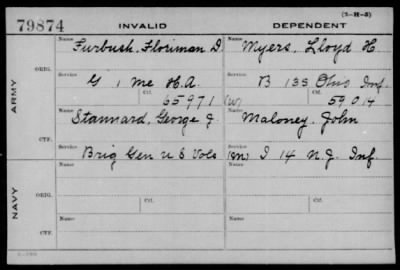 (3-H-5)
79874 INVALID DEPENDENT
Name Furbush, Floriman D. Name Myers, Lloyd H.
ORIG. Service G 1 Me H.A. Service B 135 Ohio Inf.
Ctf. 65971 (W) Ctf. 59014
ARMY
Name Stannard, George J. Name Maloney, John
CTF. Service Brig Gen U S Vols Service (m) I 14 N.J. Inf.
NAVY
Name Name
ORIG. Service Ctf. Service Ctf.
Name Name
CTF. Service Service